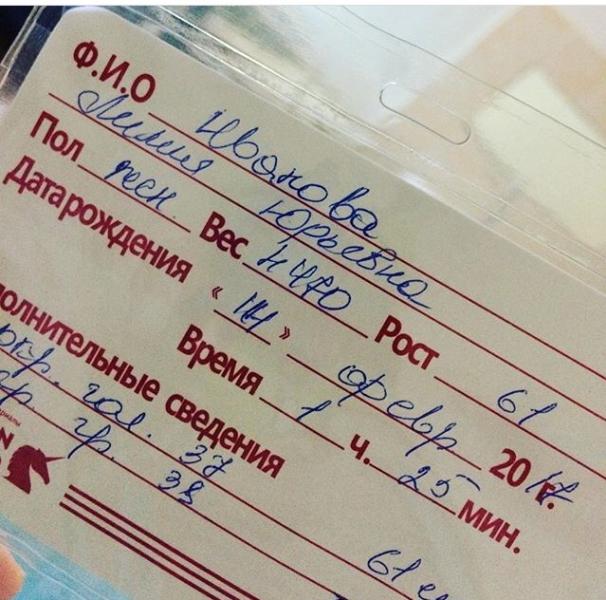 Ф.И.О Иванова
Лилия Юрьевна
Пол жен. Вес 4470 Рост 61
Дата рождения «14» февр 2017 г.
Время 1 ч. 25 мин.
полнительные сведения
окр. гол. 37
гр. 38
61